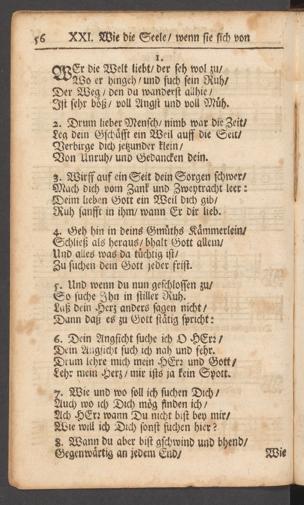 56 XXI. Wie die Seele/ wenn sie sich von
1.
WEr die Welt liebt/ der seh wol zu/
Wo er hingeh/ und such sein Ruh/
Der Weg/ den du wanderst allhie/
Ist sehr böß/ voll Angst und voll Müh.
2. Drum lieber Mensch/ nimb war die Zeit/
Leg dein Gschäfft ein Weil auff die Seit/
Verbirge dich jetzunder klein/
Von Unruh/ und Gedancken dein.
3. Wirff auf ein Seit dein Sorgen schwer/
Mach dich vom Zank und Zweytracht leer:
Deim lieben Gott ein Weil dich gib/
Ruh sanfft in ihm/ wann Er dir lieb.
4. Geh hin in deins Gmüths Kämmerlein/
Schließ als heraus/ bhalt Gott allem/
Und alles was da tüchtig ist/
Zu suchen dein Gott jeder frist.
5. Und wenn du nun geschlossen zu/
So suche Ihn in stiller Ruh.
Laß dein Herz anders sagen nicht/
Dann daß es zu Gott stätig spricht:
6. Dein Angsicht suche ich O HErr/
Dein Angsicht such ich nah und fehr.
Drum lehre mich mein HErr und Gott/
Lehr mein Herz/ mir ists ja kein Spott.
7. Wie und wo soll ich suchen Dich/
Auch wo ich Dich mög finden ich/
Ach HErr wann Du nicht bist bey mir/
Wie will ich Dich sonst suchen hier?
8. Wann du aber bist gschwind und bhend/
Gegenwärtig an jedem End/ Wie